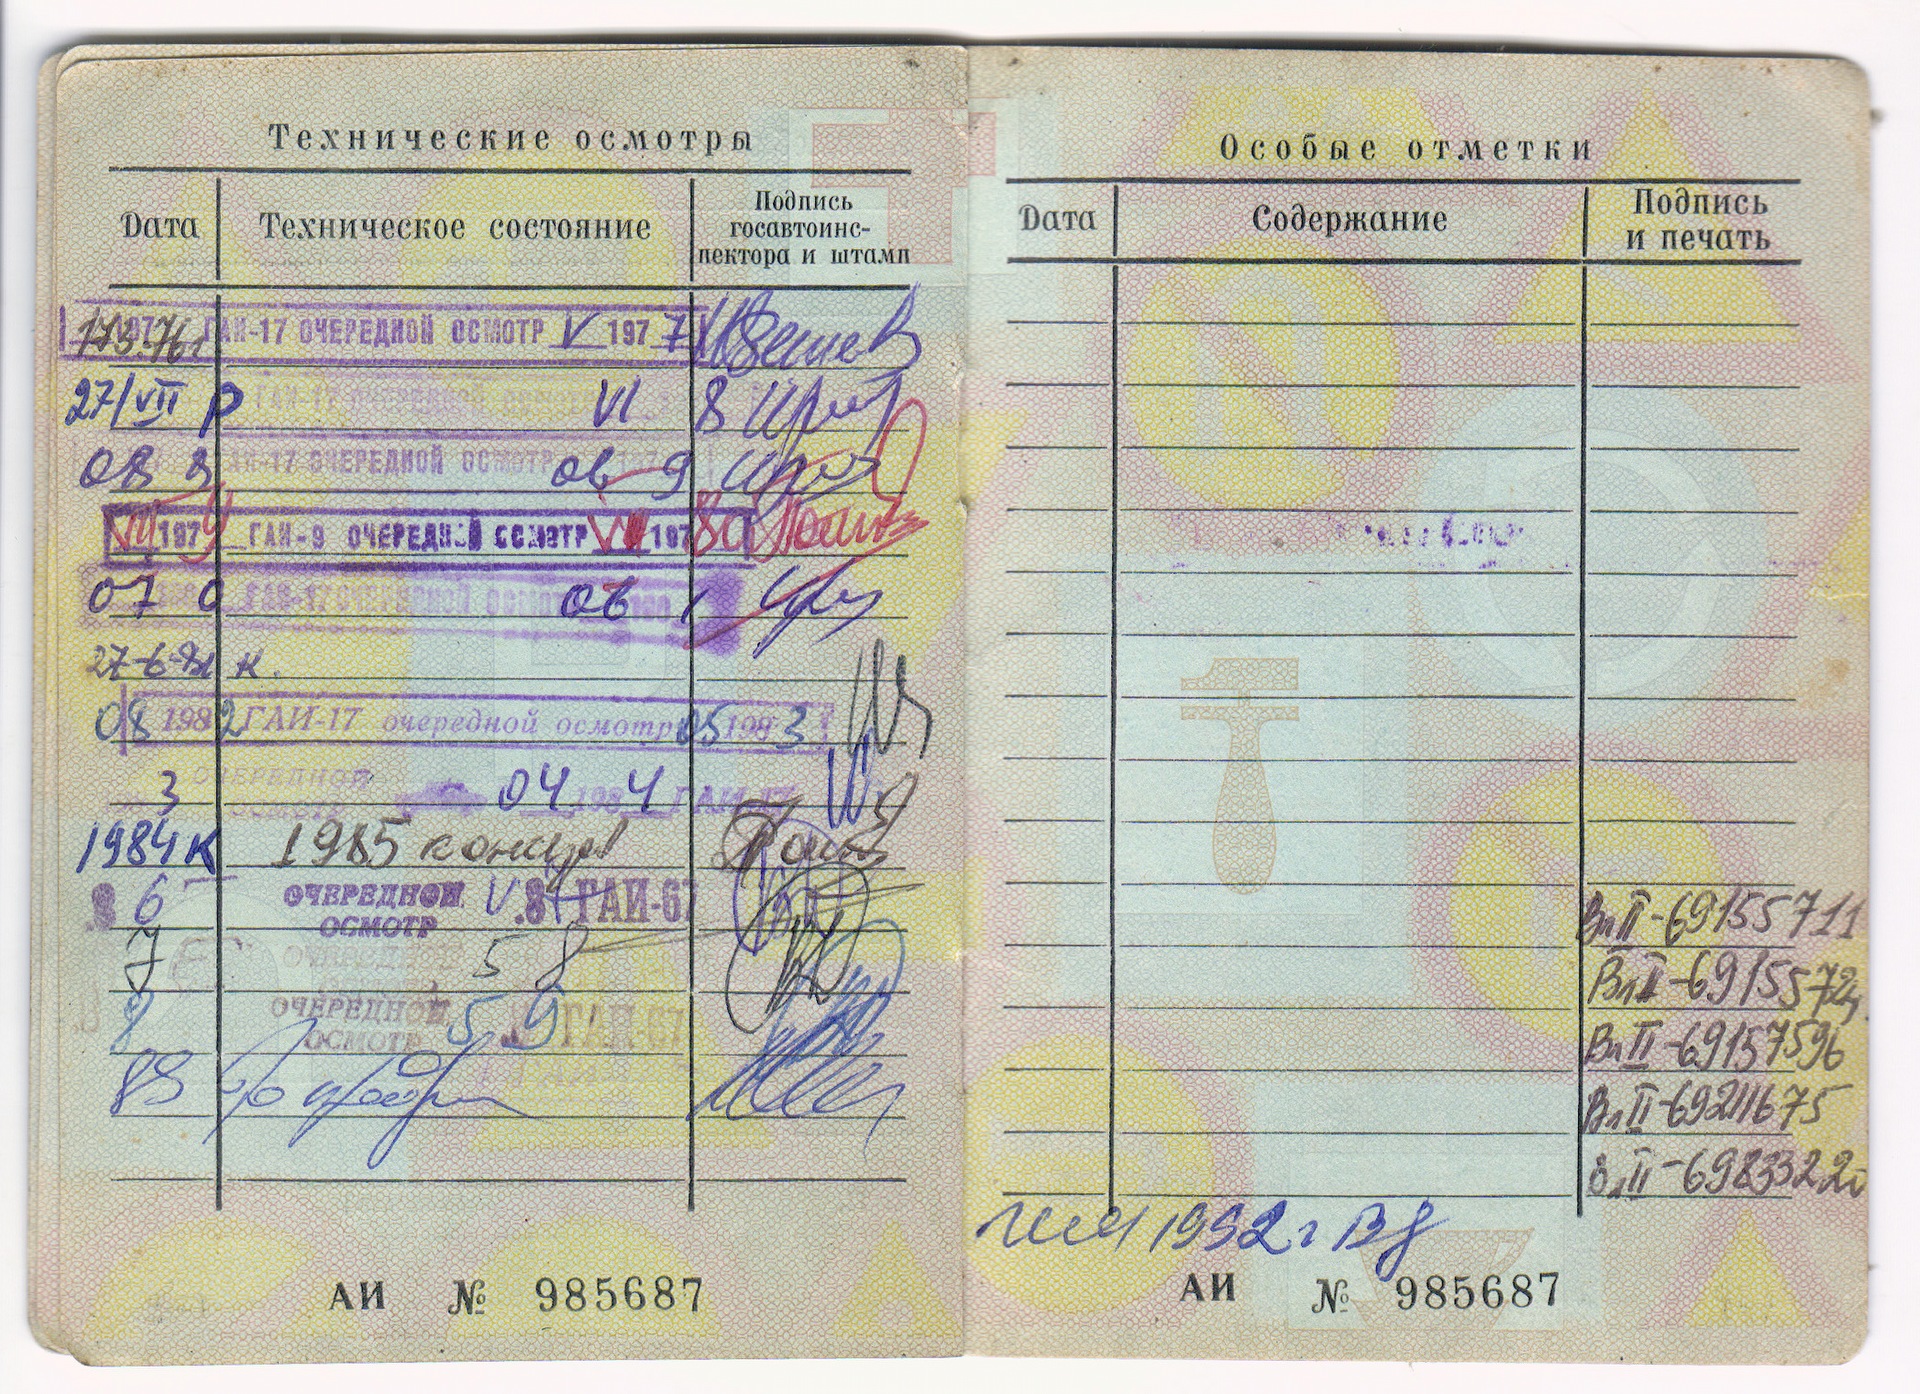 Технические осмотры
Дата
Техническое состояние
Подпись
госавтоинс-
пектора и штамп
ГАИ-17 ОЧЕРЕДНОЙ ОСМОТР V 1977
27/VII р ГАИ-17 ОЧЕРЕДНОЙ VI 8
08 8 ГАИ-17 ОЧЕРЕДНОЙ ОСМОТР 06 9
VIII 1979 ГАИ-9 ОЧЕРЕДНОЙ ОСМОТР 1980
07 0 ГАИ-17 ОЧЕРЕДНОЙ ОСМОТР 06 1
27-6-81 к.
08 1982 ГАИ-17 очередной осмотр 05 1983
3 ОЧЕРЕДНОЙ ОСМОТР 04 1984 ГАИ-17
1984 к 1985
86 ОЧЕРЕДНОЙ ОСМОТР V .87 ГАИ-67
7 ОЧЕРЕДНОЙ 5 8
8 ОЧЕРЕДНОЙ ОСМОТР 5 9 ГАИ-67
АИ № 985687
Особые отметки
Дата
Содержание
Подпись
и печать
ВлII-69155711
ВлII-6915572
ВлII-69157596
ВлII-69211675
ВлII-69833220
1992 г
АИ № 985687